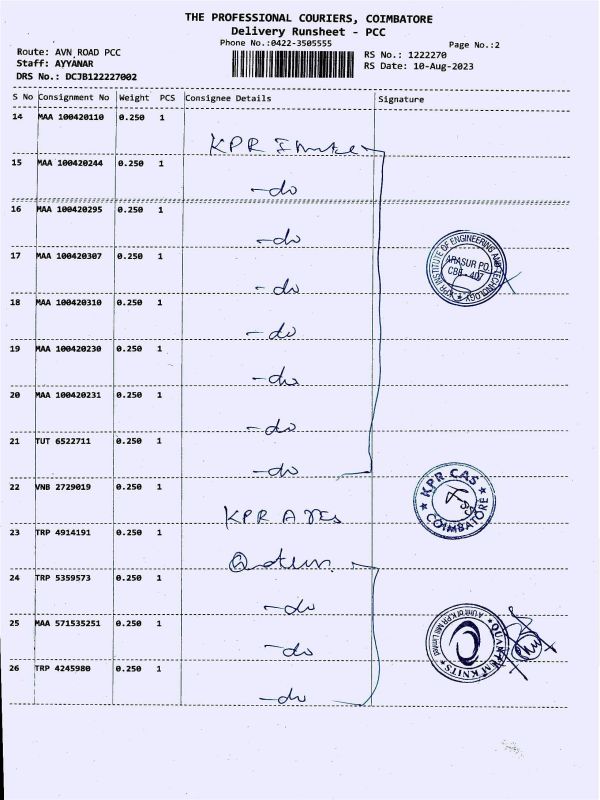 THE PROFESSIONAL COURIERS, COIMBATORE
Delivery Runsheet - PCC
Phone No.:0422-3505555
Page No.:2
Route: AVN_ROAD PCC
Staff: AYYANAR
DRS No.: DCJB122227002
RS No.: 1222270
RS Date: 10-Aug-2023
S No Consignment No Weight PCS Consignee Details Signature
14 MAA 100420110 0.250 1
KPR
15 MAA 100420244 0.250 1
-do
16 MAA 100420295 0.250 1
-do
17 MAA 100420307 0.250 1
-do
KPR INSTITUTE OF ENGINEERING AND TECHNOLOGY
ARASUR PO.
CBE - 407
18 MAA 100420310 0.250 1
-do
19 MAA 100420230 0.250 1
-do
20 MAA 100420231 0.250 1
-do
21 TUT 6522711 0.250 1
-do
22 VNB 2729019 0.250 1
KPR
KPR CAS
COIMBATORE
23 TRP 4914191 0.250 1
24 TRP 5359573 0.250 1
-do
25 MAA 571535251 0.250 1
-do
QUANTUM KNITS
A Unit of KPR Mill Limited
26 TRP 4245980 0.250 1
-do